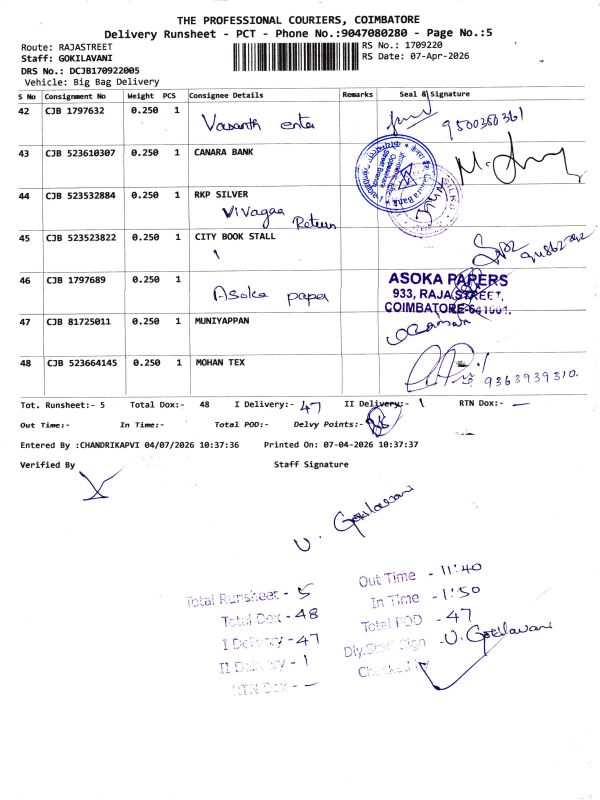 THE PROFESSIONAL COURIERS, COIMBATORE
Delivery Runsheet - PCT - Phone No.:9047080280 - Page No.:5
Route: RAJASTREET
Staff: GOKILAVANI
DRS No.: DCJB170922005
Vehicle: Big Bag Delivery
RS No.: 1709220
RS Date: 07-Apr-2026
S No Consignment No Weight PCS Consignee Details Remarks Seal & Signature
42 CJB 1797632 0.250 1 Vasanth enter 9500360361
43 CJB 523610307 0.250 1 CANARA BANK
44 CJB 523532884 0.250 1 RKP SILVER
Vivagaa Return
45 CJB 523523822 0.250 1 CITY BOOK STALL
46 CJB 1797689 0.250 1 Asoka paper
ASOKA PAPERS
933, RAJA STREET,
COIMBATORE-641001.
47 CJB 81725011 0.250 1 MUNIYAPPAN
48 CJB 523664145 0.250 1 MOHAN TEX 9363939310
Tot. Runsheet:- 5 Total Dox:- 48 I Delivery:- 47 II Delivery:- 1 RTN Dox:- —
Out Time:- In Time:- Total POD:- Delvy Points:-
Entered By :CHANDRIKAPVI 04/07/2026 10:37:36 Printed On: 07-04-2026 10:37:37
Verified By Staff Signature
V. Gokilavani
Total Runsheet - 5
Total Dox - 48
I Delivery - 47
II Delivery - 1
RTN Dox - —
Out Time - 11:40
In Time - 1:50
Total POD - 47
Dly.Staff Sign - V. Gokilavani
Checked by